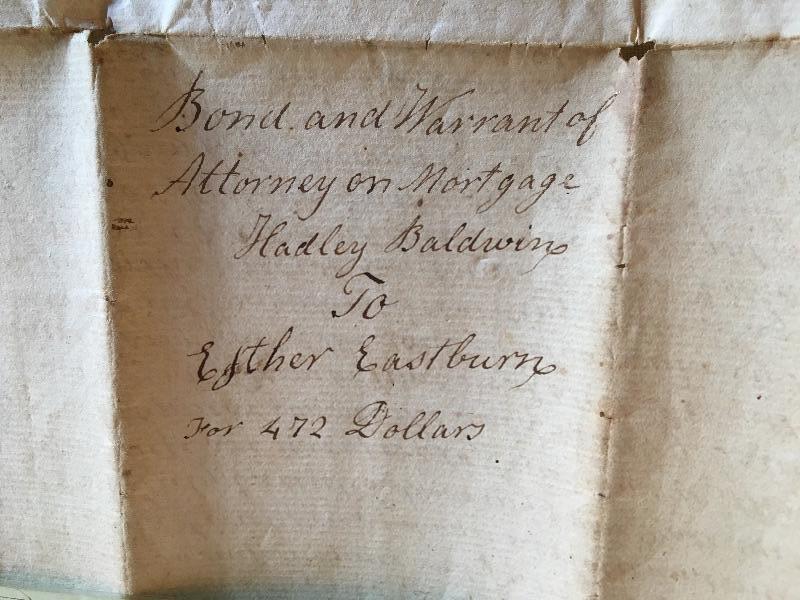 Bond and Warrant of
Attorney on Mortgage
Hadley Baldwin
To
Esther Eastburn
For 472 Dollars